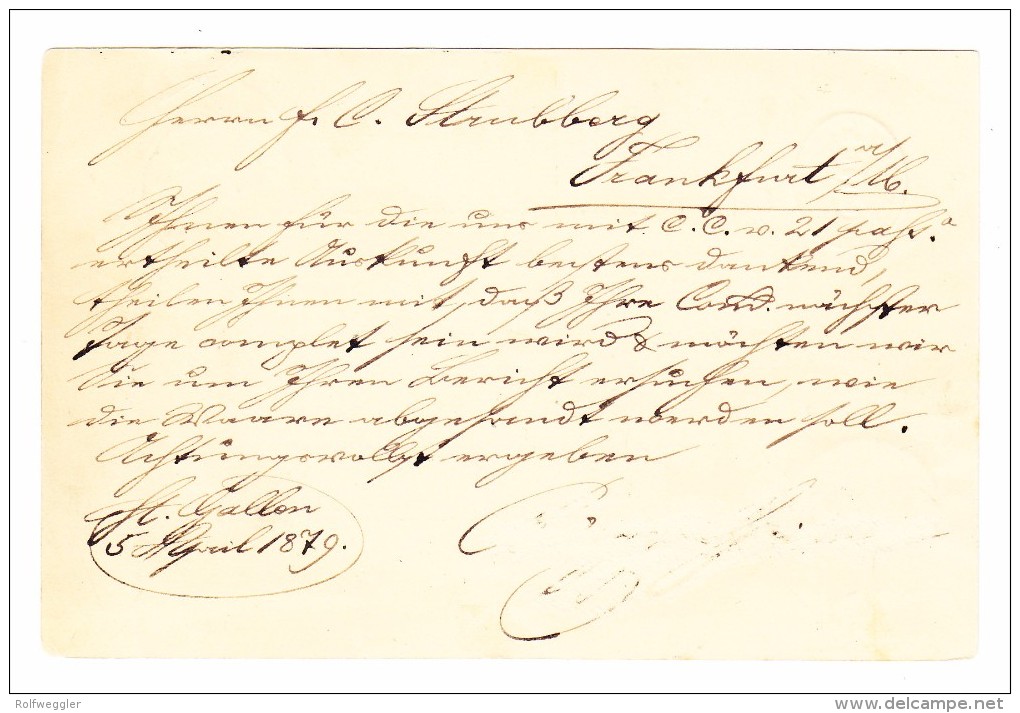 Herrn F. C. Strubberg
Frankfurt a/M.
Ihnen für die uns mit C. C. v. 21 pass.º
ertheilte Auskunft bestens dankend,
theilen Ihnen mit, daß Ihre Cond. nächster
Tage complet sein wird & möchten wir
Sie um Ihren Bericht ersuchen, wie
die Waare abgesandt werden soll.
Achtungsvollst ergeben
St. Gallen
5 April 1879.
Rolfweggler
delcampe.net